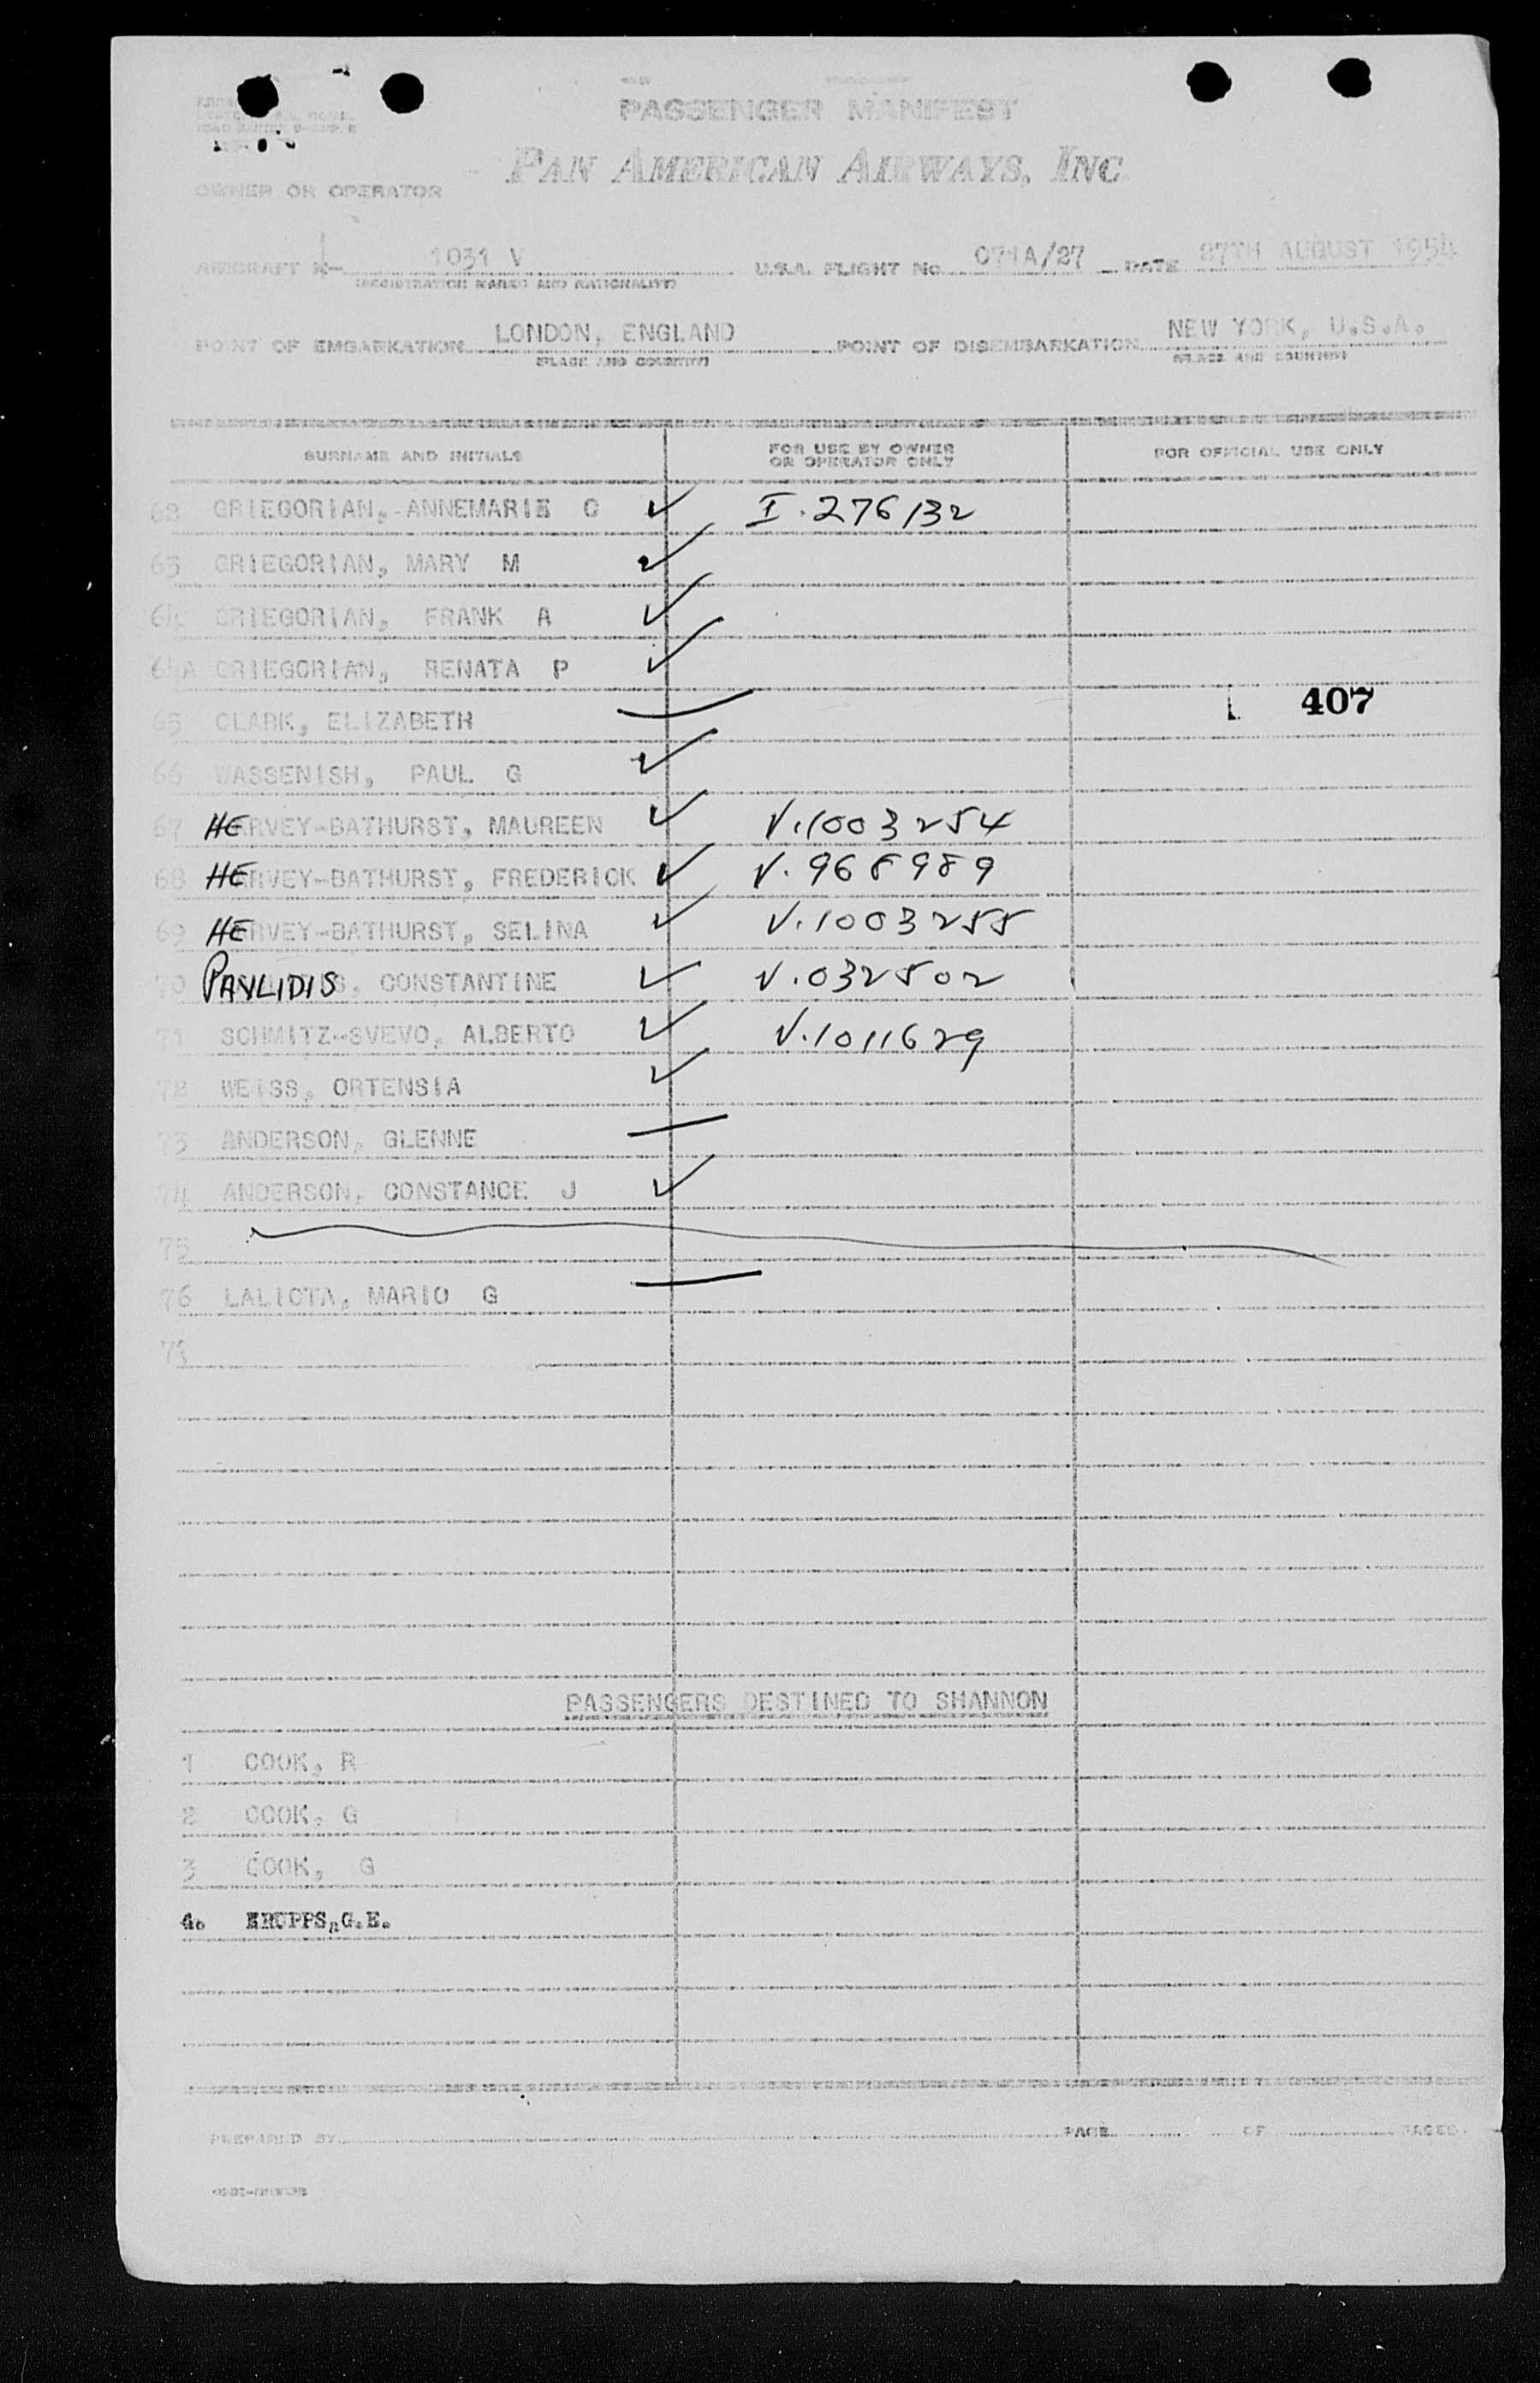 PASSENGER MANIFEST
PAN AMERICAN AIRWAYS, INC.
OWNER OR OPERATOR
AIRCRAFT N- 1031 V U.S.A. FLIGHT No. 071A/27 DATE 27TH AUGUST 1954
(REGISTRATION MARKS AND NATIONALITY)
POINT OF EMBARKATION LONDON, ENGLAND POINT OF DISEMBARKATION NEW YORK, U.S.A.
(PLACE AND COUNTRY) (PLACE AND COUNTRY)
SURNAME AND INITIALS FOR USE BY OWNER OR OPERATOR ONLY FOR OFFICIAL USE ONLY
62 GRIEGORIAN, ANNEMARIE C ✓ I.276132
63 GRIEGORIAN, MARY M ✓
64 GRIEGORIAN, FRANK A ✓
64A GRIEGORIAN, RENATA P ✓
407
65 CLARK, ELIZABETH —
66 WASSENISH, PAUL G ✓
67 HERVEY-BATHURST, MAUREEN ✓ V.1003254
68 HERVEY-BATHURST, FREDERICK ✓ V.968989
69 HERVEY-BATHURST, SELINA ✓ V.1003255
70 PAVLIDIS, CONSTANTINE ✓ V.032502
71 SCHMITZ-SVEVO, ALBERTO ✓ V.1011629
72 WEISS, ORTENSIA ✓
73 ANDERSON, GLENNE —
74 ANDERSON, CONSTANCE J ✓
75
76 LALICTA, MARIO G —
77
PASSENGERS DESTINED TO SHANNON
1 COOK, R
2 COOK, G
3 COOK, G
4. KRUPPS, G.E.
PREPARED BY PAGE OF PAGES